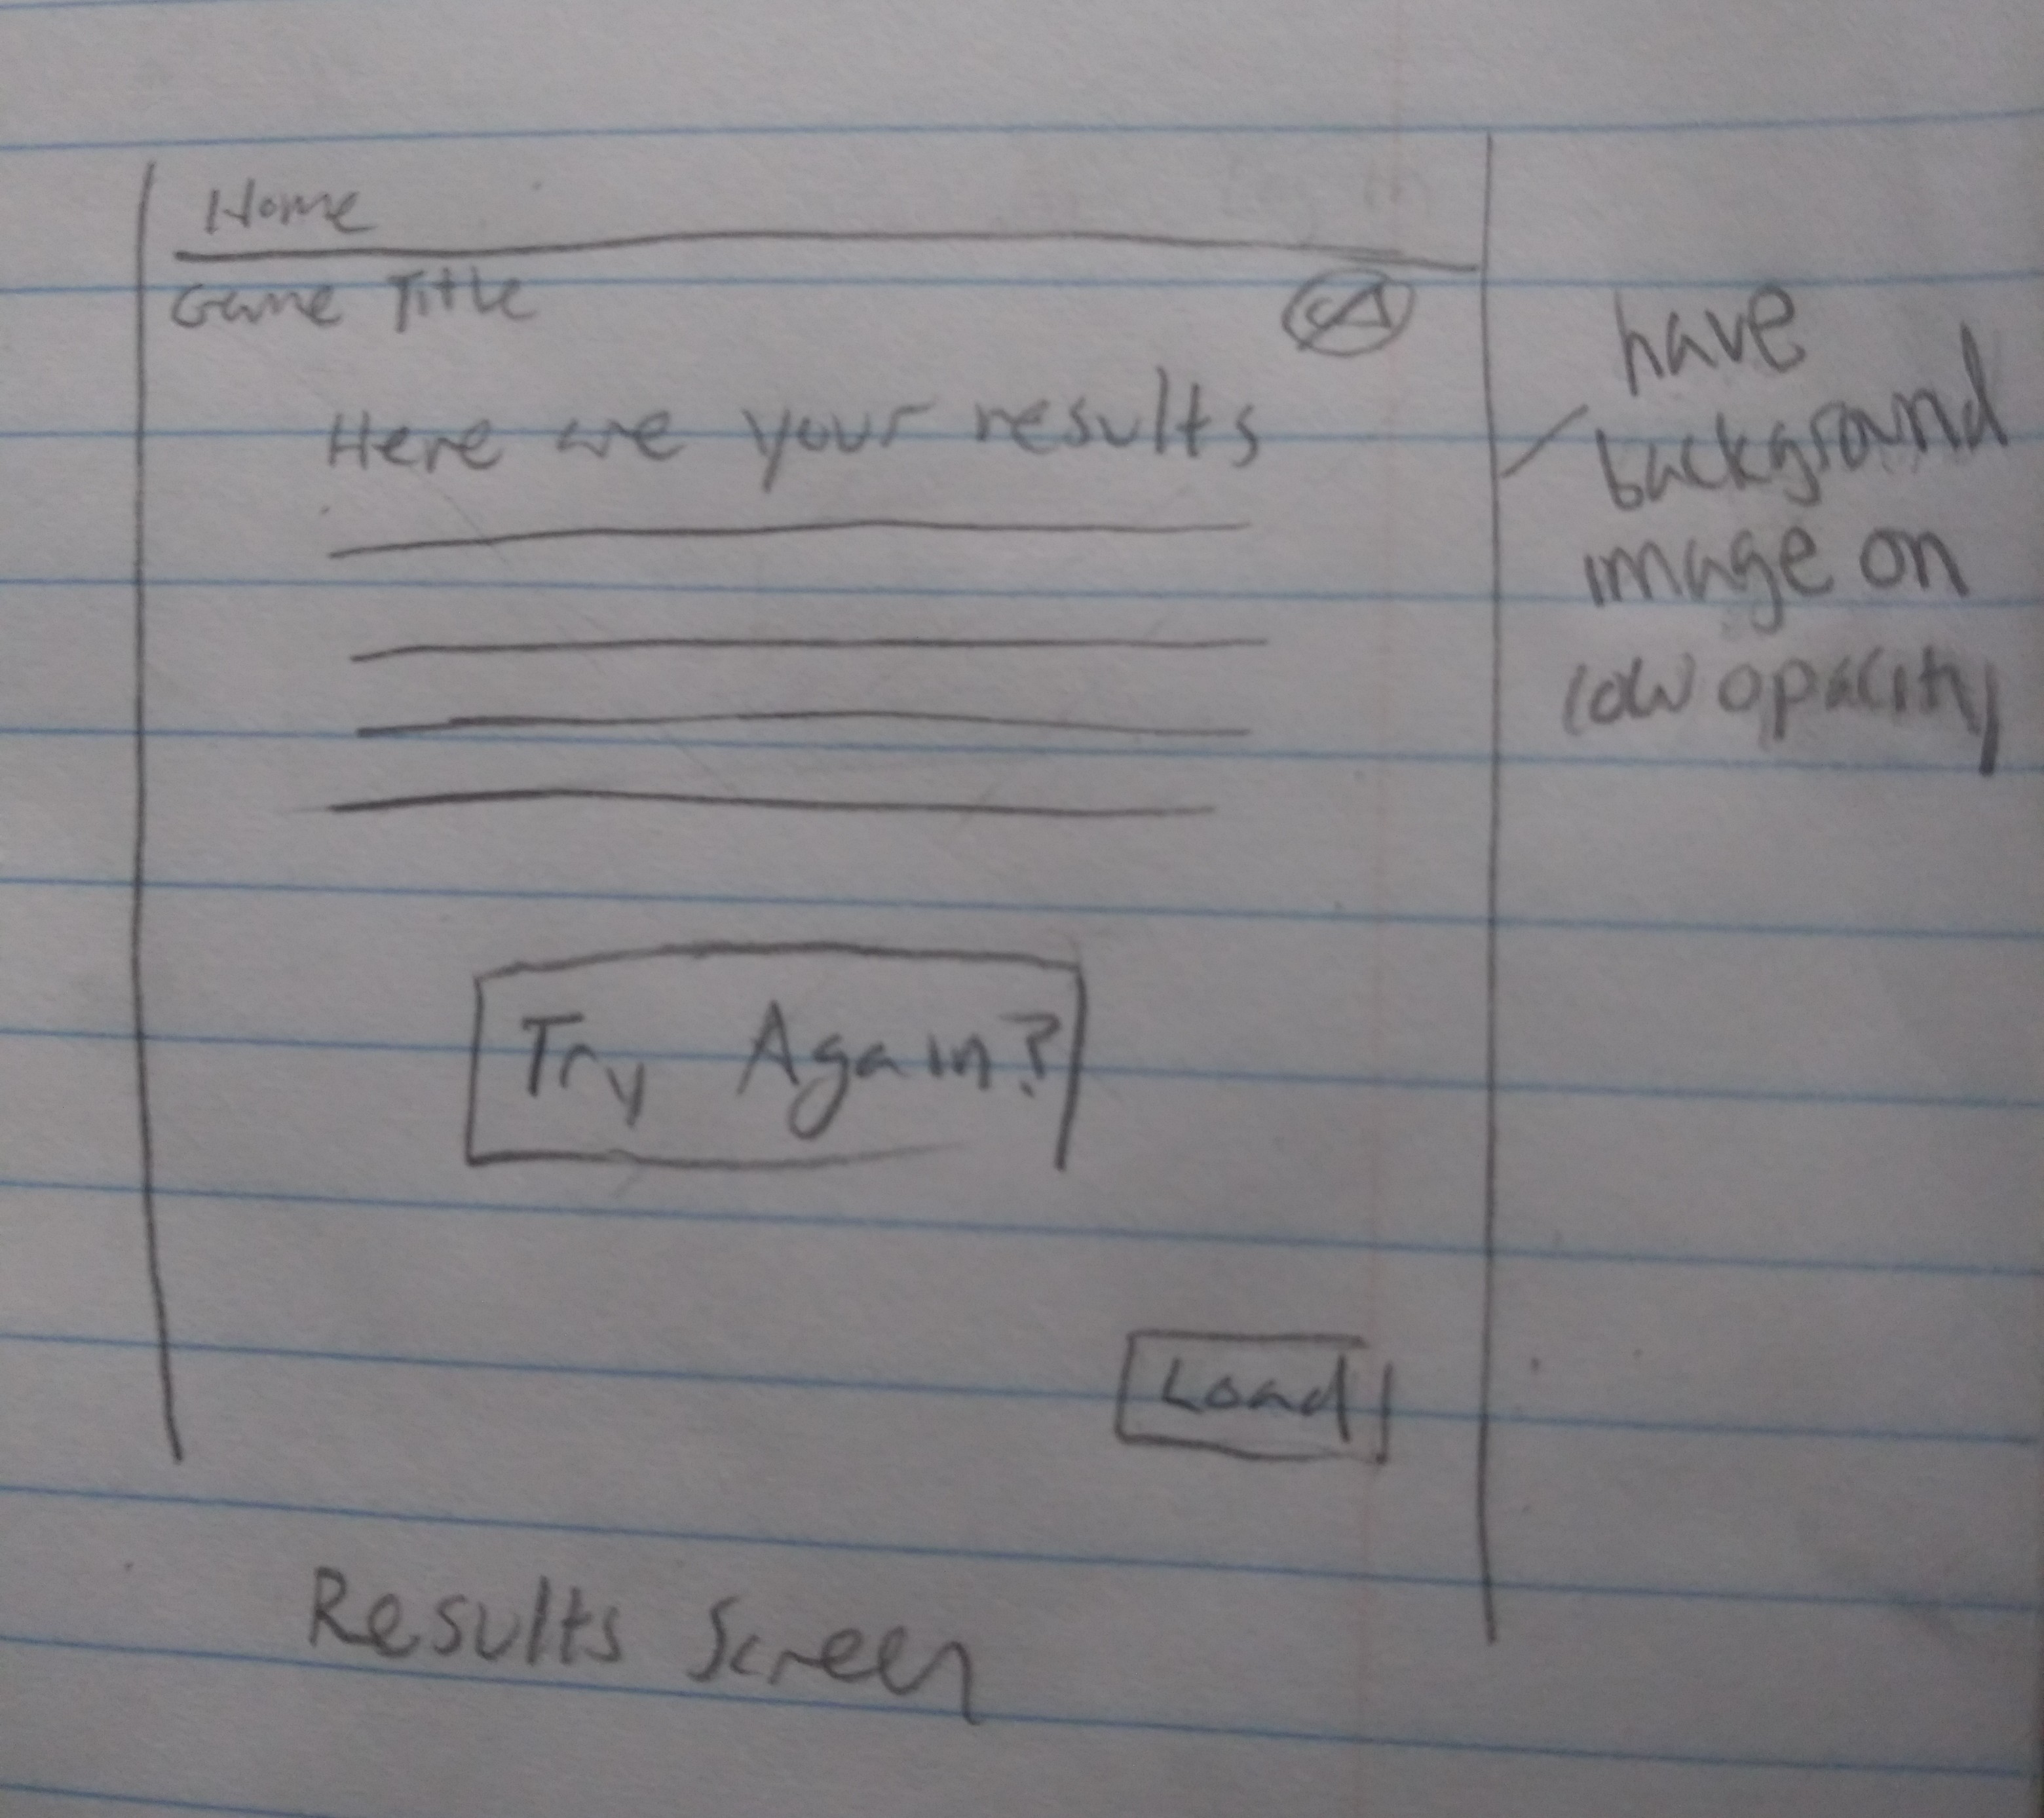 Home
Game Title
Here are your results
Try Again?
Load
have
background
image on
low opacity
Results Screen